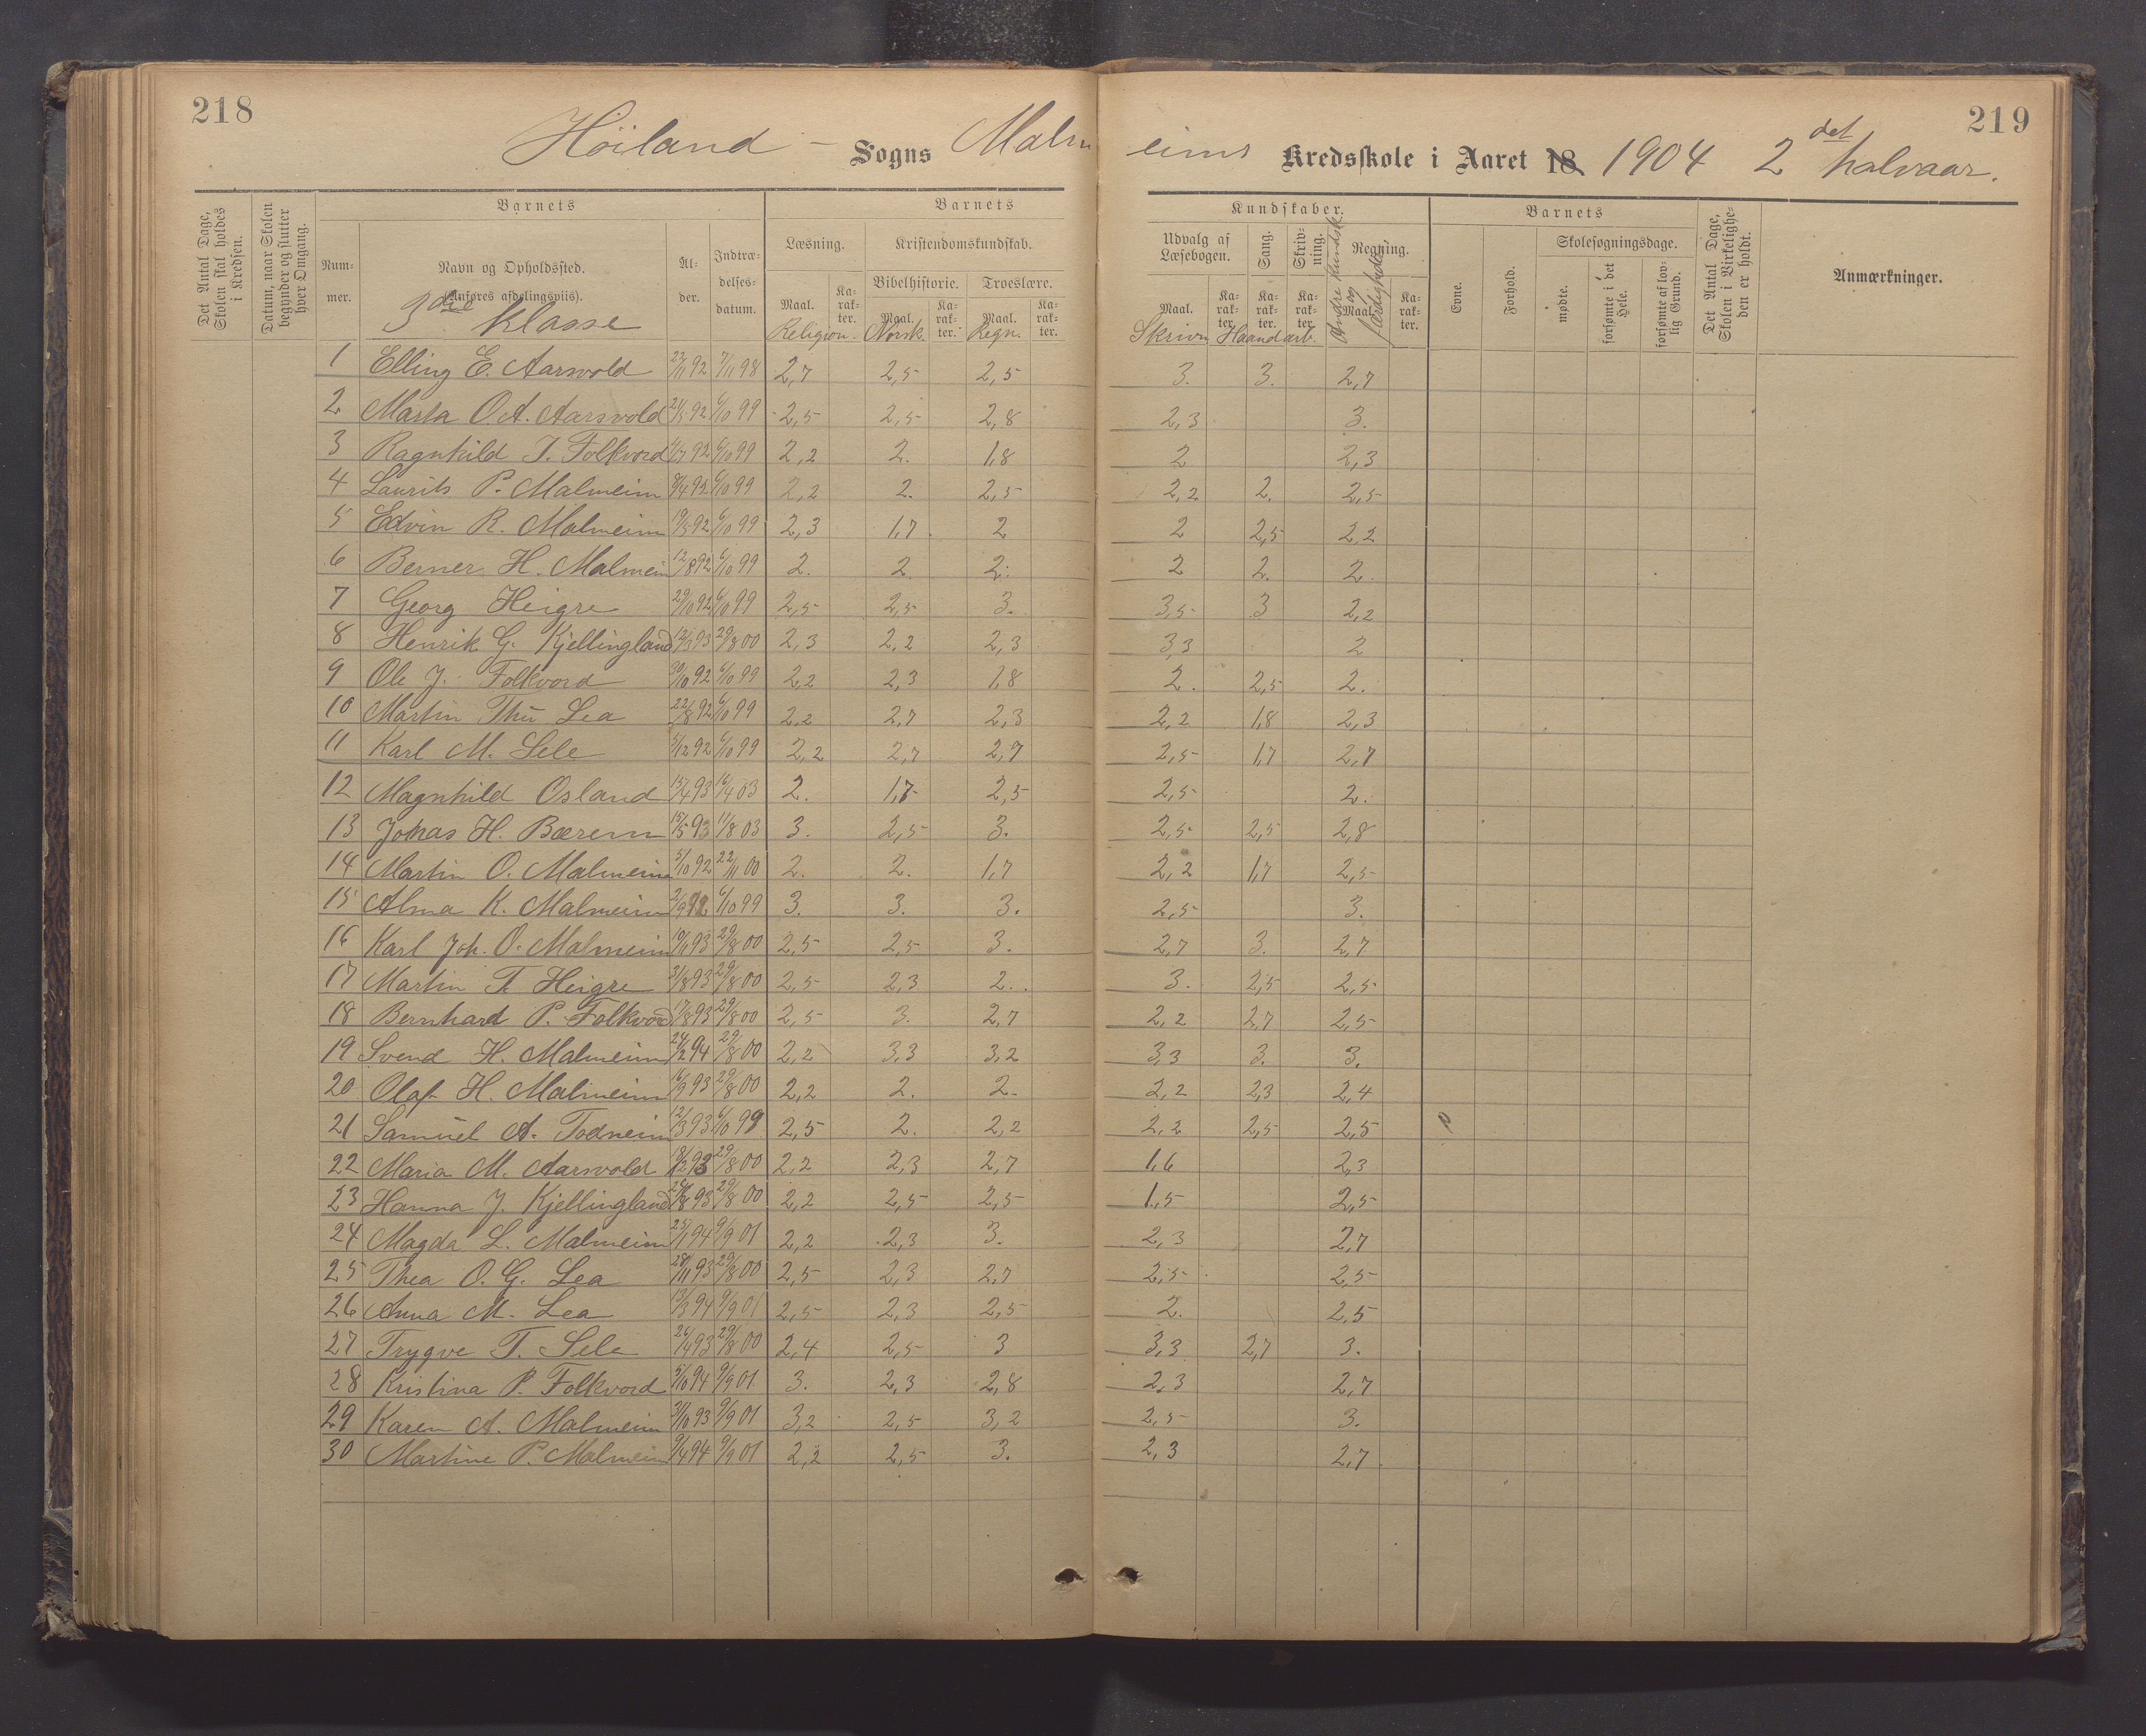 218
219
Höiland - Sogns Malmeims Kredsskole i Aaret 18 1904 2det halvaar.
Det Antal Dage, Skolen skal holdes i Kredsen.
Datum, naar Skolen begynder og slutter hver Omgang.
Barnets
Barnets
Kundskaber.
Barnets
Det Antal Dage, Skolen i Virkeligheden er holdt.
Anmærkninger.
Nummer.
Navn og Opholdssted. (Anføres afdelingsviis).
Alder.
Indtrædelsesdatum.
Læsning.
Kristendomskundskab.
Bibelhistorie.
Troeslære.
Udvalg af Læsebogen.
Sang.
Skrivning.
Regning.
Evne.
Forhold.
Skolesøgningsdage.
mødte.
forsømte i det Hele.
forsømte af lovlig Grund.
Maal. Karakter. Maal. Karakter. Maal. Karakter. Maal. Karakter. Karakter. Karakter. Maal. Karakter.
3die Klasse
Religion. Norsk. Regn. Skrivn. Haandarb. Andre Kundsk. og færdigheder
1 Elling E. Aarsvold 23/11 92 7/11 98 2,7 2,5 2,5 3. 3. 2,7
2 Marta O.A. Aarsvold 21/5 92 6/10 99 2,5 2,5 2,8 2,3 3.
3 Ragnhild T. Folkvord 92 6/10 99 2,2 2. 1,8 2 2,3
4 Laurits P. Malmeim 8/4 92 6/10 99 2,2 2. 2,5 2,2 2. 2,5
5 Edvin R. Malmeim 19/5 92 6/10 99 2,3 1,7. 2 2 2,5 2,2
6 Berner H. Malmeim 12/8 92 6/10 99 2. 2. 2. 2 2. 2.
7 Georg Heigre 29/10 92 6/10 99 2,5 2,5 3. 3,5 3 2,2
8 Henrik G. Kjellingland 12/3 93 29/8 00 2,3 2,2 2,3 3,3 2
9 Ole J. Folkvord 30/10 92 6/10 99 2,2 2,3 1,8 2. 2,5 2.
10 Martin Thu Lea 22/8 92 6/10 99 2,2 2,7 2,3 2,2 1,8 2,3
11 Karl M. Sele 5/12 92 6/10 99 2,2 2,7 2,7 2,5 1,7 2,7
12 Magnhild Osland 15/4 93 16/4 03 2. 1,7 2,5 2,5 2.
13 Johas H. Bærem 15/5 93 11/8 03 3. 2,5 3. 2,5 2,5 2,8
14 Martin O. Malmeim 5/10 92 22/11 00 2. 2. 1,7 2,2 1,7 2,5
15 Alma K. Malmeim 2/9 92 6/10 99 3. 3. 3. 2,5 3.
16 Karl Joh. O. Malmeim 10/1 93 29/8 00 2,5 2,5 3. 2,7 3. 2,7
17 Martin T. Heigre 31/8 93 29/8 00 2,5 2,3 2. 3. 2,5 2,5
18 Bernhard P. Folkvord 17/8 93 29/8 00 2,5 3. 2,7 2,2 2,7 2,5
19 Svend H. Malmeim 24/2 94 29/8 00 2,2 3,3 3,2 3,3 3. 3.
20 Olaf H. Malmeim 16/9 93 29/8 00 2,2 2. 2. 2,2 2,3 2,4
21 Samuel A. Todneim 12/3 93 6/10 99 2,5 2. 2,2 2,2 2,5 2,5
22 Maria M. Aarsvold 18/12 93 29/8 00 2,2 2,3 2,7 1,6 2,3
23 Hanna J. Kjellingland 93 29/8 00 2,2 2,5 2,5 1,5 2,5
24 Magda L. Malmeim 25/1 94 9/9 01 2,2 2,3 3. 2,3 2,7
25 Thea O. G. Lea 28/11 93 29/8 00 2,5 2,3 2,7 2,5 2,5
26 Anna M. Lea 13/3 94 9/9 01 2,5 2,3 2,5 2. 2,5
27 Trygve T. Sele 26/4 93 29/8 00 2,4 2,5 3 3,3 2,7 3.
28 Kristina P. Folkvord 5/10 94 9/9 01 3. 2,3 2,8 2,3 2,7
29 Karen A. Malmeim 31/10 93 9/9 01 3,2 2,5 3,2 2,5 3.
30 Martine P. Malmeim 9/4 94 9/9 01 2,2 2,5 3. 2,3 2,7